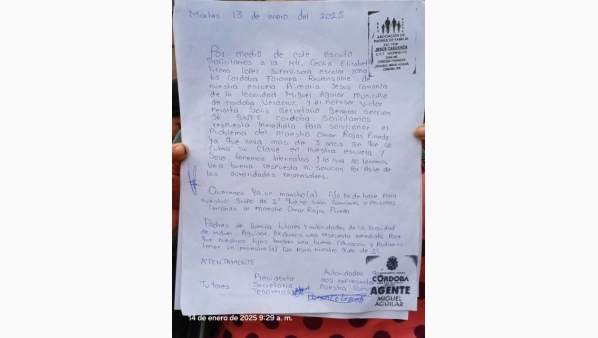 Martes 13 de enero del 2025
ASOCIACION DE
PADRES DE FAMILIA
JESUS CARRANZA
Por medio de este escrito
Solicitamos a la Mtr. Cecilia Elizabeth
Viena Lopez Supervisora escolar zona
Cordoba Foranea. Responsable de
nuestra escuela Primaria Jesus Carranza
de la localidad Miguel Aguilar Municipio
de Cordoba Veracruz y al Profesor Victor
Peralta Solis Secretario General Seccion
56 SNTE Cordoba. Solicitamos
respuesta inmediata Para solucionar el
Problema del maestro Omar Rojas Pineda
Ya que lleva mas de 3 años sin que se
cubra su Clave en nuestra escuela y
Solo tenemos interinatos y no tenemos
una buena respuesta ni solucion Por Parte de
las autoridades responsables.
Queremos Ya un maestro(a) fijo de base Para
nuestro Grupo de 1° que no sean familiares o Personas
cercanas al maestro Omar Rojas Pineda
Padres de familia tutores y autoridades de la localidad
de Miguel Aguilar. Exigimos una respuesta inmediata Para
que nuestros hijos tengan una buena Educacion y Podamos
tener un maestro(a) fijo Para nuestro Grupo de 1°
ATENTAMENTE
Autoridades
Presidenta
nos representan
Tutores
Secretaria
nuestra
Tesorera
CÓRDOBA
AGENTE
MIGUEL
AGUILAR
14 de enero de 2025 9:29 a. m.